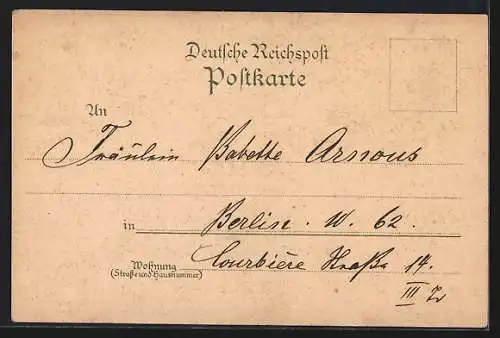 Deutsche Reichspost
Postkarte
An
Fräulein Babette Arnous
in Berlin. W. 62.
Wohnung Courbière Straße 14.
(Straße und Hausnummer)
III Tr